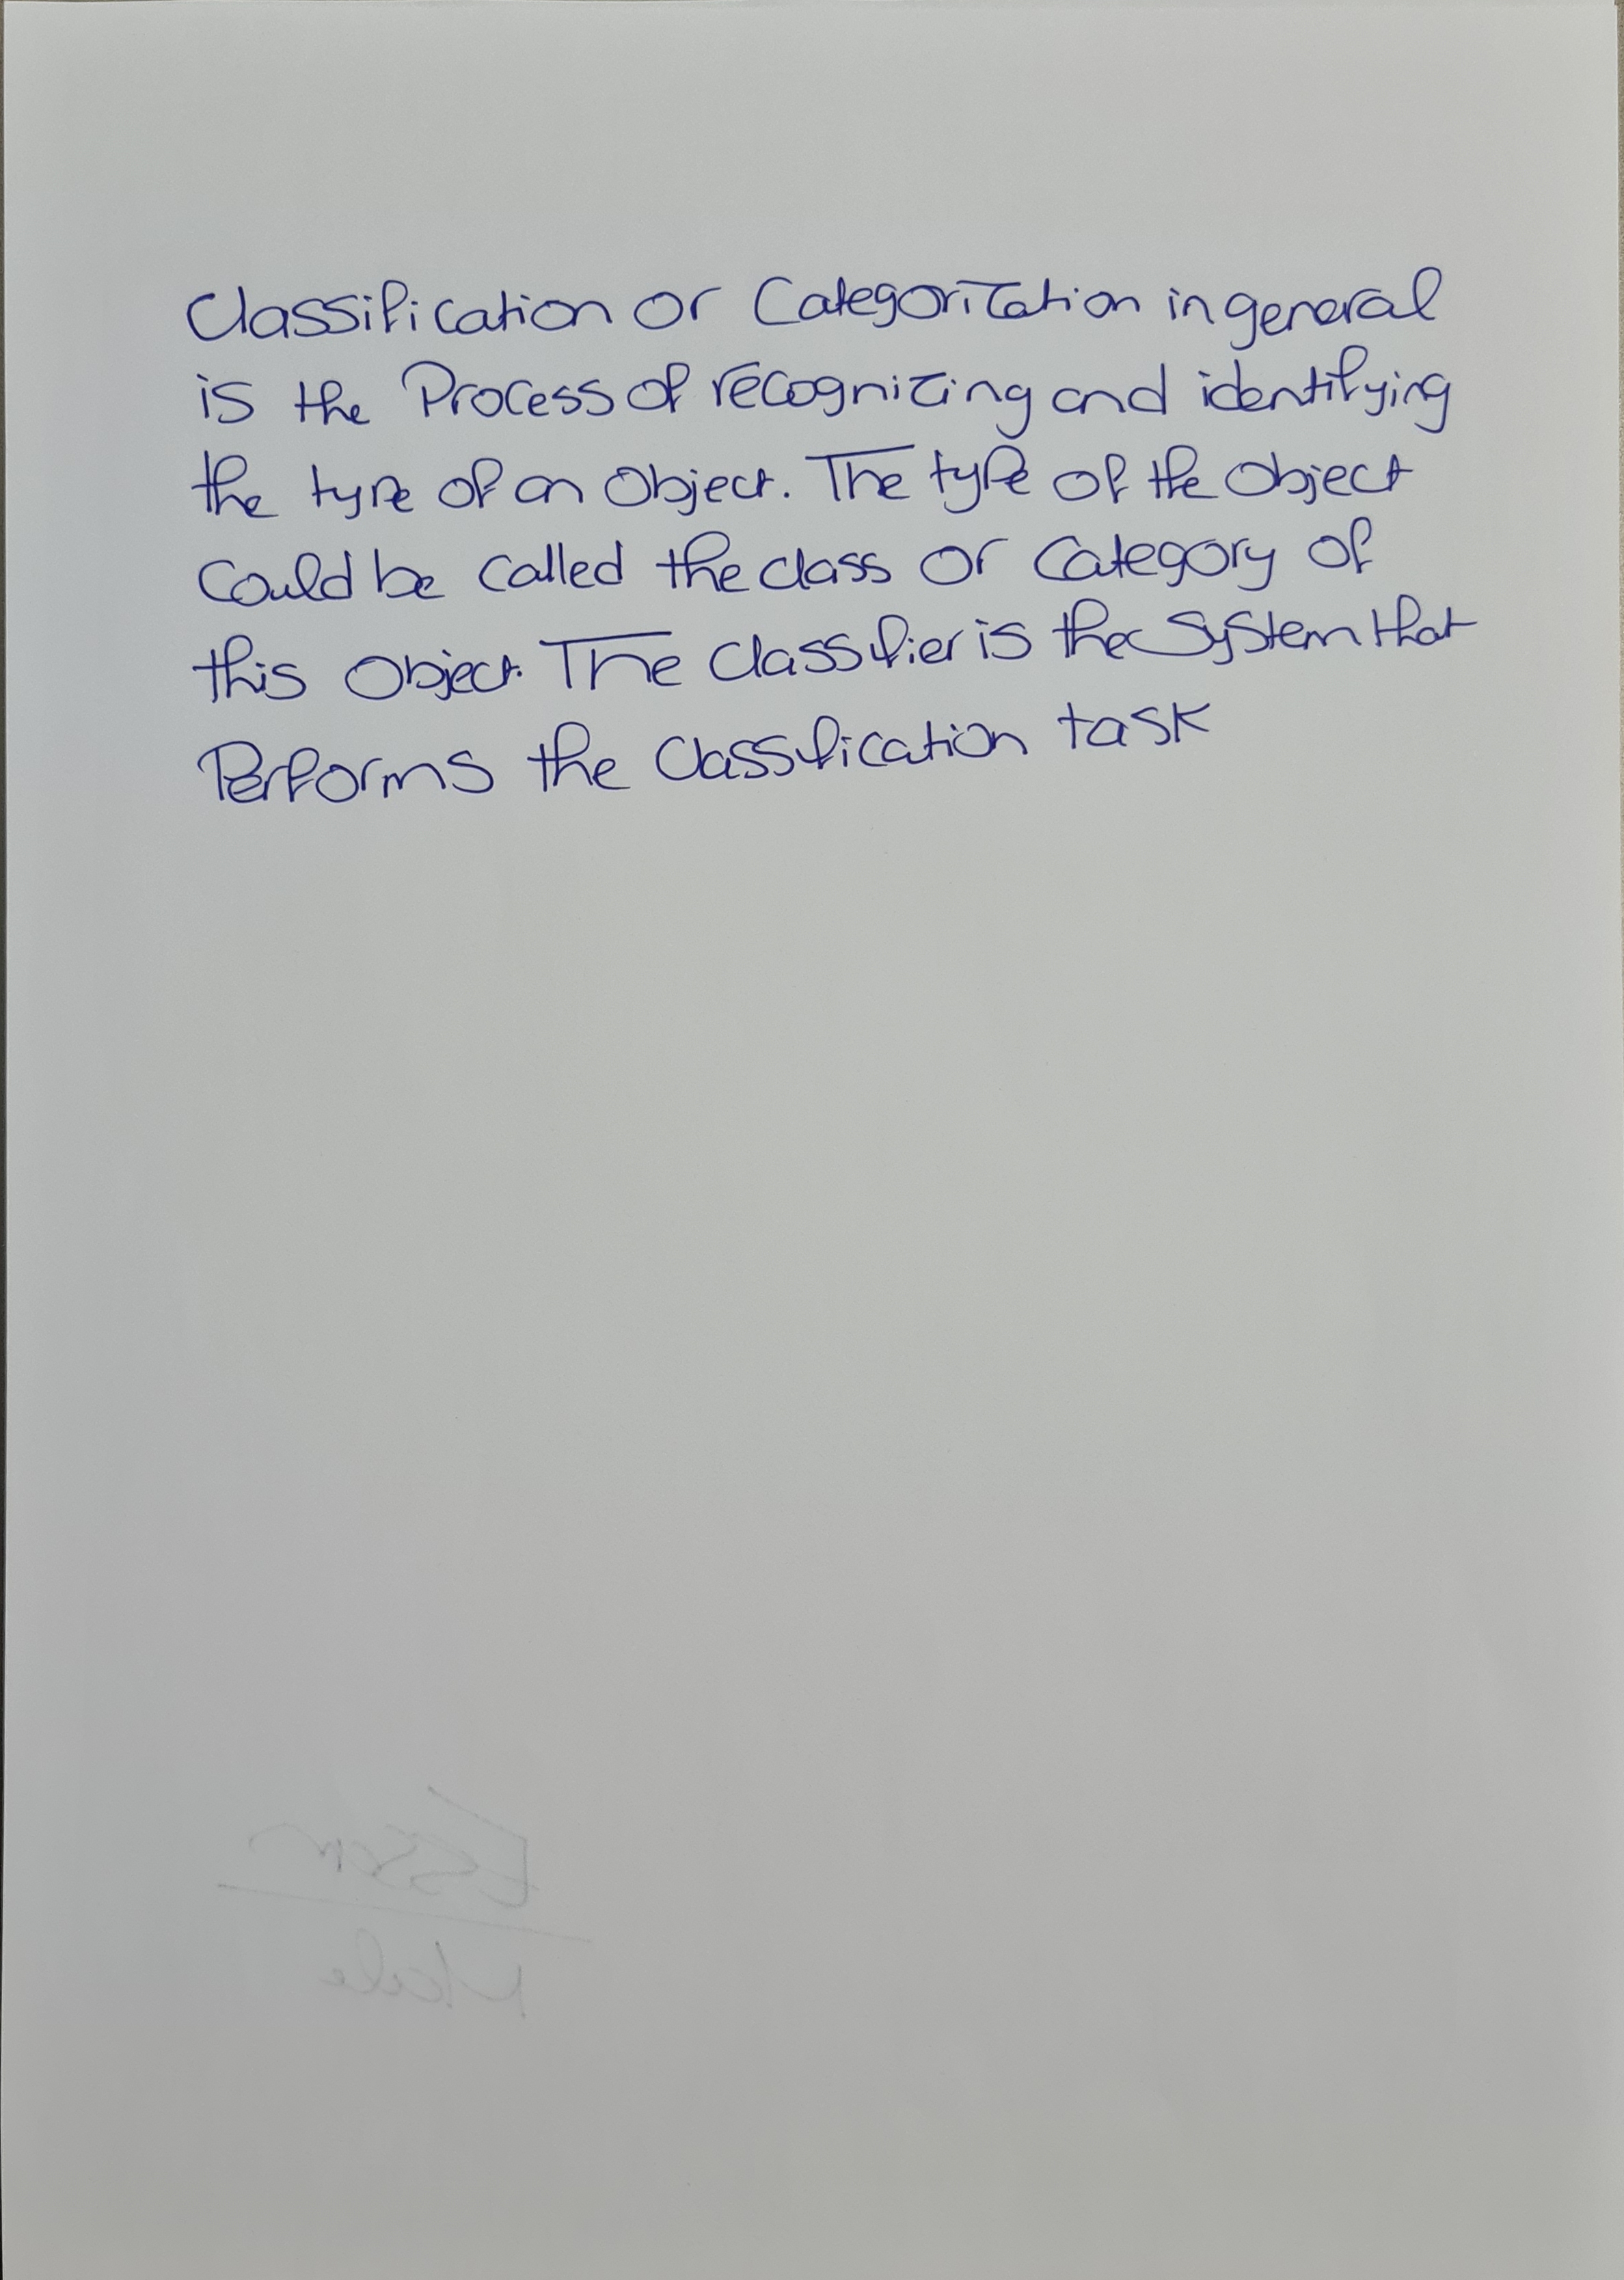 Classification or Categorization in general
is the Process of recognizing and identifying
the type of an Object. The type of the Object
Could be Called the class or Category of
this Object. The Classifier is the System that
Performs the Classification task